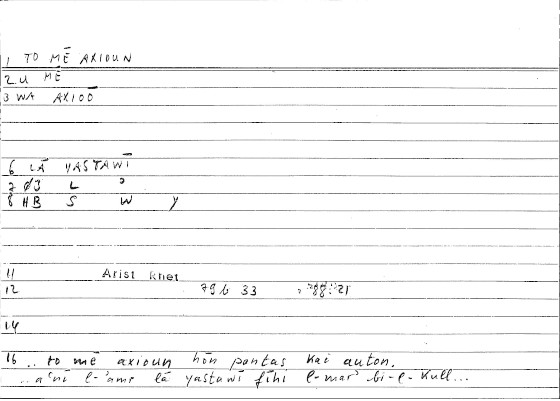 1 TO MĒ AXIOUN
2 U MĒ
3 WA AXIOŌ
6 LĀ YASTAWĪ
7 Ø3 L ʾ
8 HB S W Y
11 Arist Rhet
12 79b 33
14
16 .. to mē axioun hōn pantas kai auton.
.. aʿnī l-ʾamr lā yastawī fīhi l-marʾ bi-l-kull...